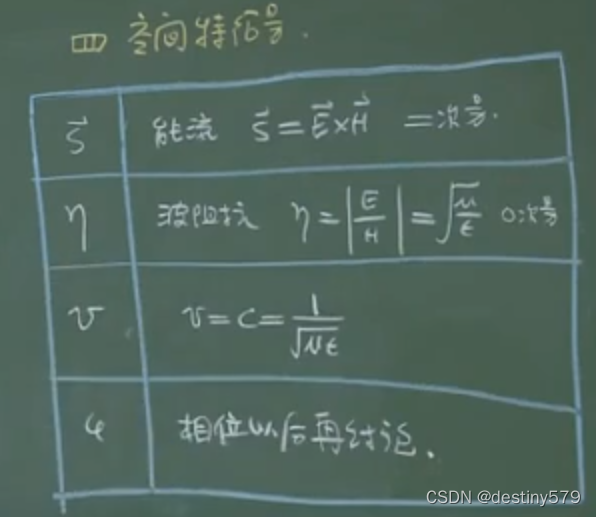 四 空间特征量.
S⃗ 能流 S⃗=E⃗×H⃗ 二次量.
η 波阻抗 η=|E/H|=√(μ/ε) 0次量
v v=c=1/√(με)
φ 相位以后再讨论.
CSDN @destiny579